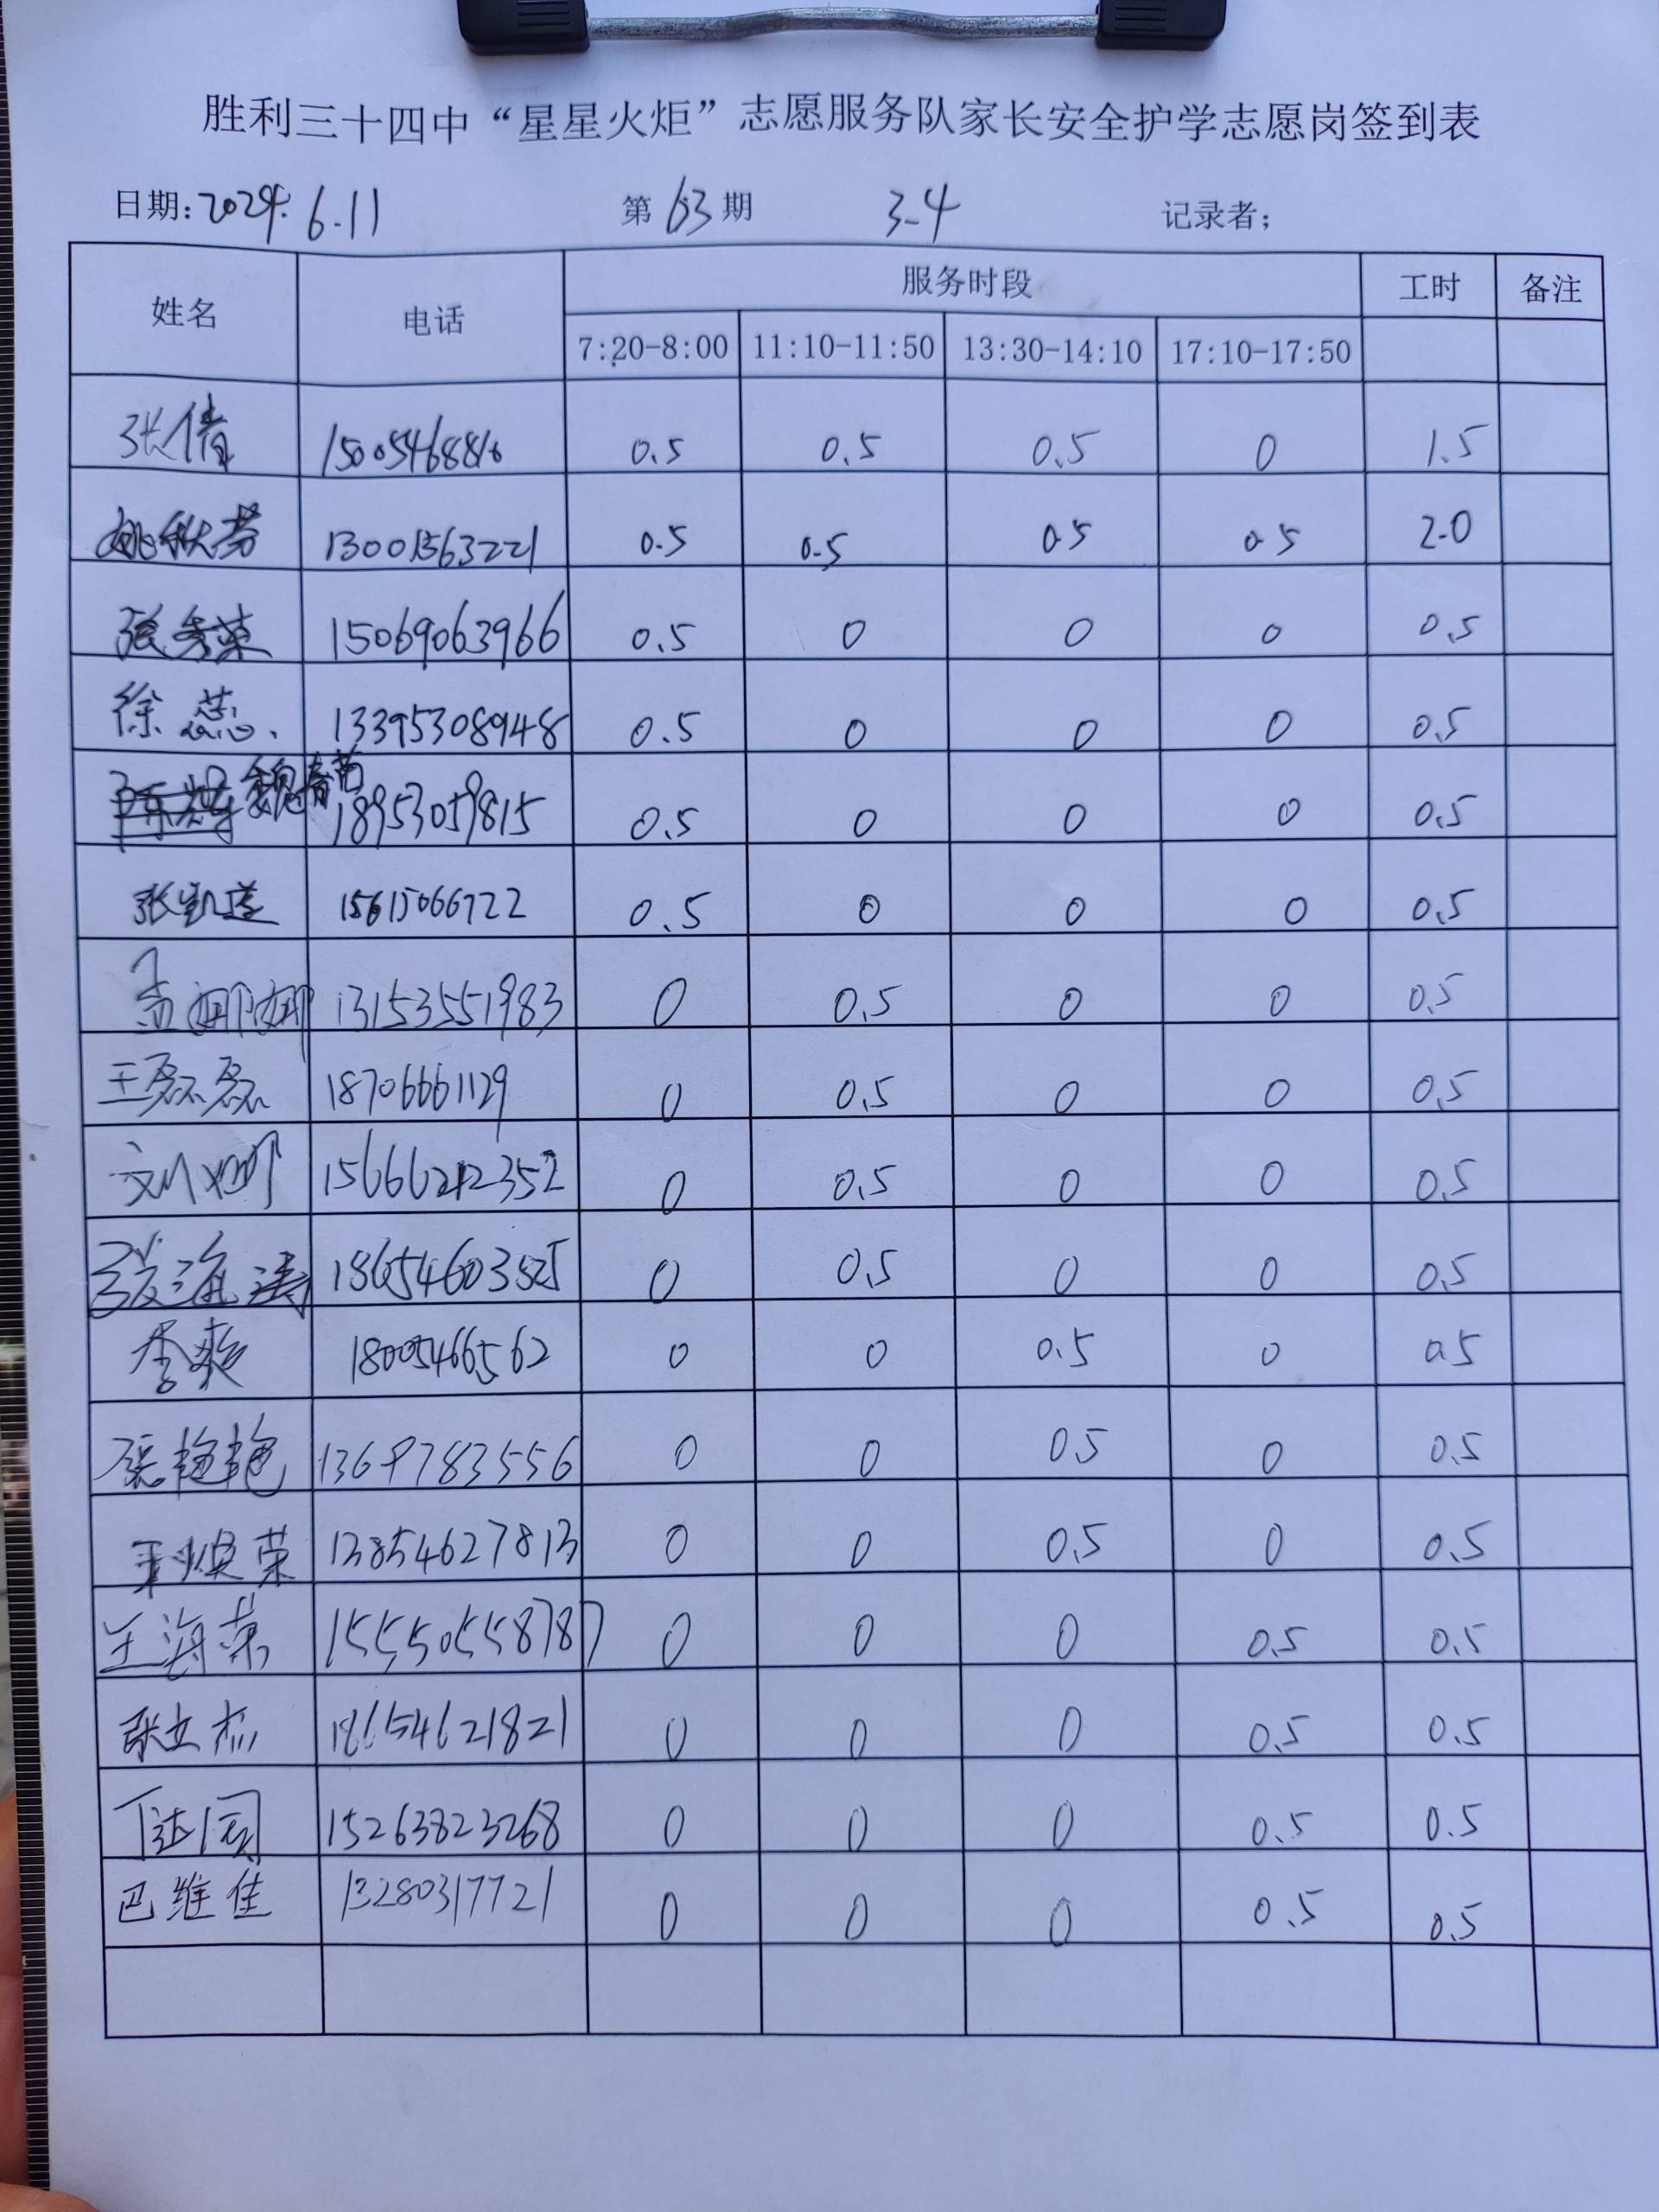 胜利三十四中“星星火炬”志愿服务队家长安全护学志愿岗签到表
日期:2024.6.11 第63期 3-4 记录者;
姓名 电话 服务时段 工时 备注
7:20-8:00 11:10-11:50 13:30-14:10 17:10-17:50
张倩 0.5 0.5 0.5 0 1.5
姚秋芳 13001563221 0.5 0.5 0.5 0.5 2.0
张秀荣 15069063966 0.5 0 0 0 0.5
徐蕊 13395308948 0.5 0 0 0 0.5
魏春苗 18953059815 0.5 0 0 0 0.5
张凯莲 15615066722 0.5 0 0 0 0.5
孟娜娜 13153551983 0 0.5 0 0 0.5
王磊磊 18706661129 0 0.5 0 0 0.5
刘娜 15666212352 0 0.5 0 0 0.5
海涛 0 0.5 0 0 0.5
李爽 18005466562 0 0 0.5 0 0.5
张艳艳 13697783556 0 0 0.5 0 0.5
王焕荣 13854627813 0 0 0.5 0 0.5
王海荣 15550558787 0 0 0 0.5 0.5
张立杰 18654621821 0 0 0 0.5 0.5
15263823268 0 0 0 0.5 0.5
巴维佳 13280317721 0 0 0 0.5 0.5